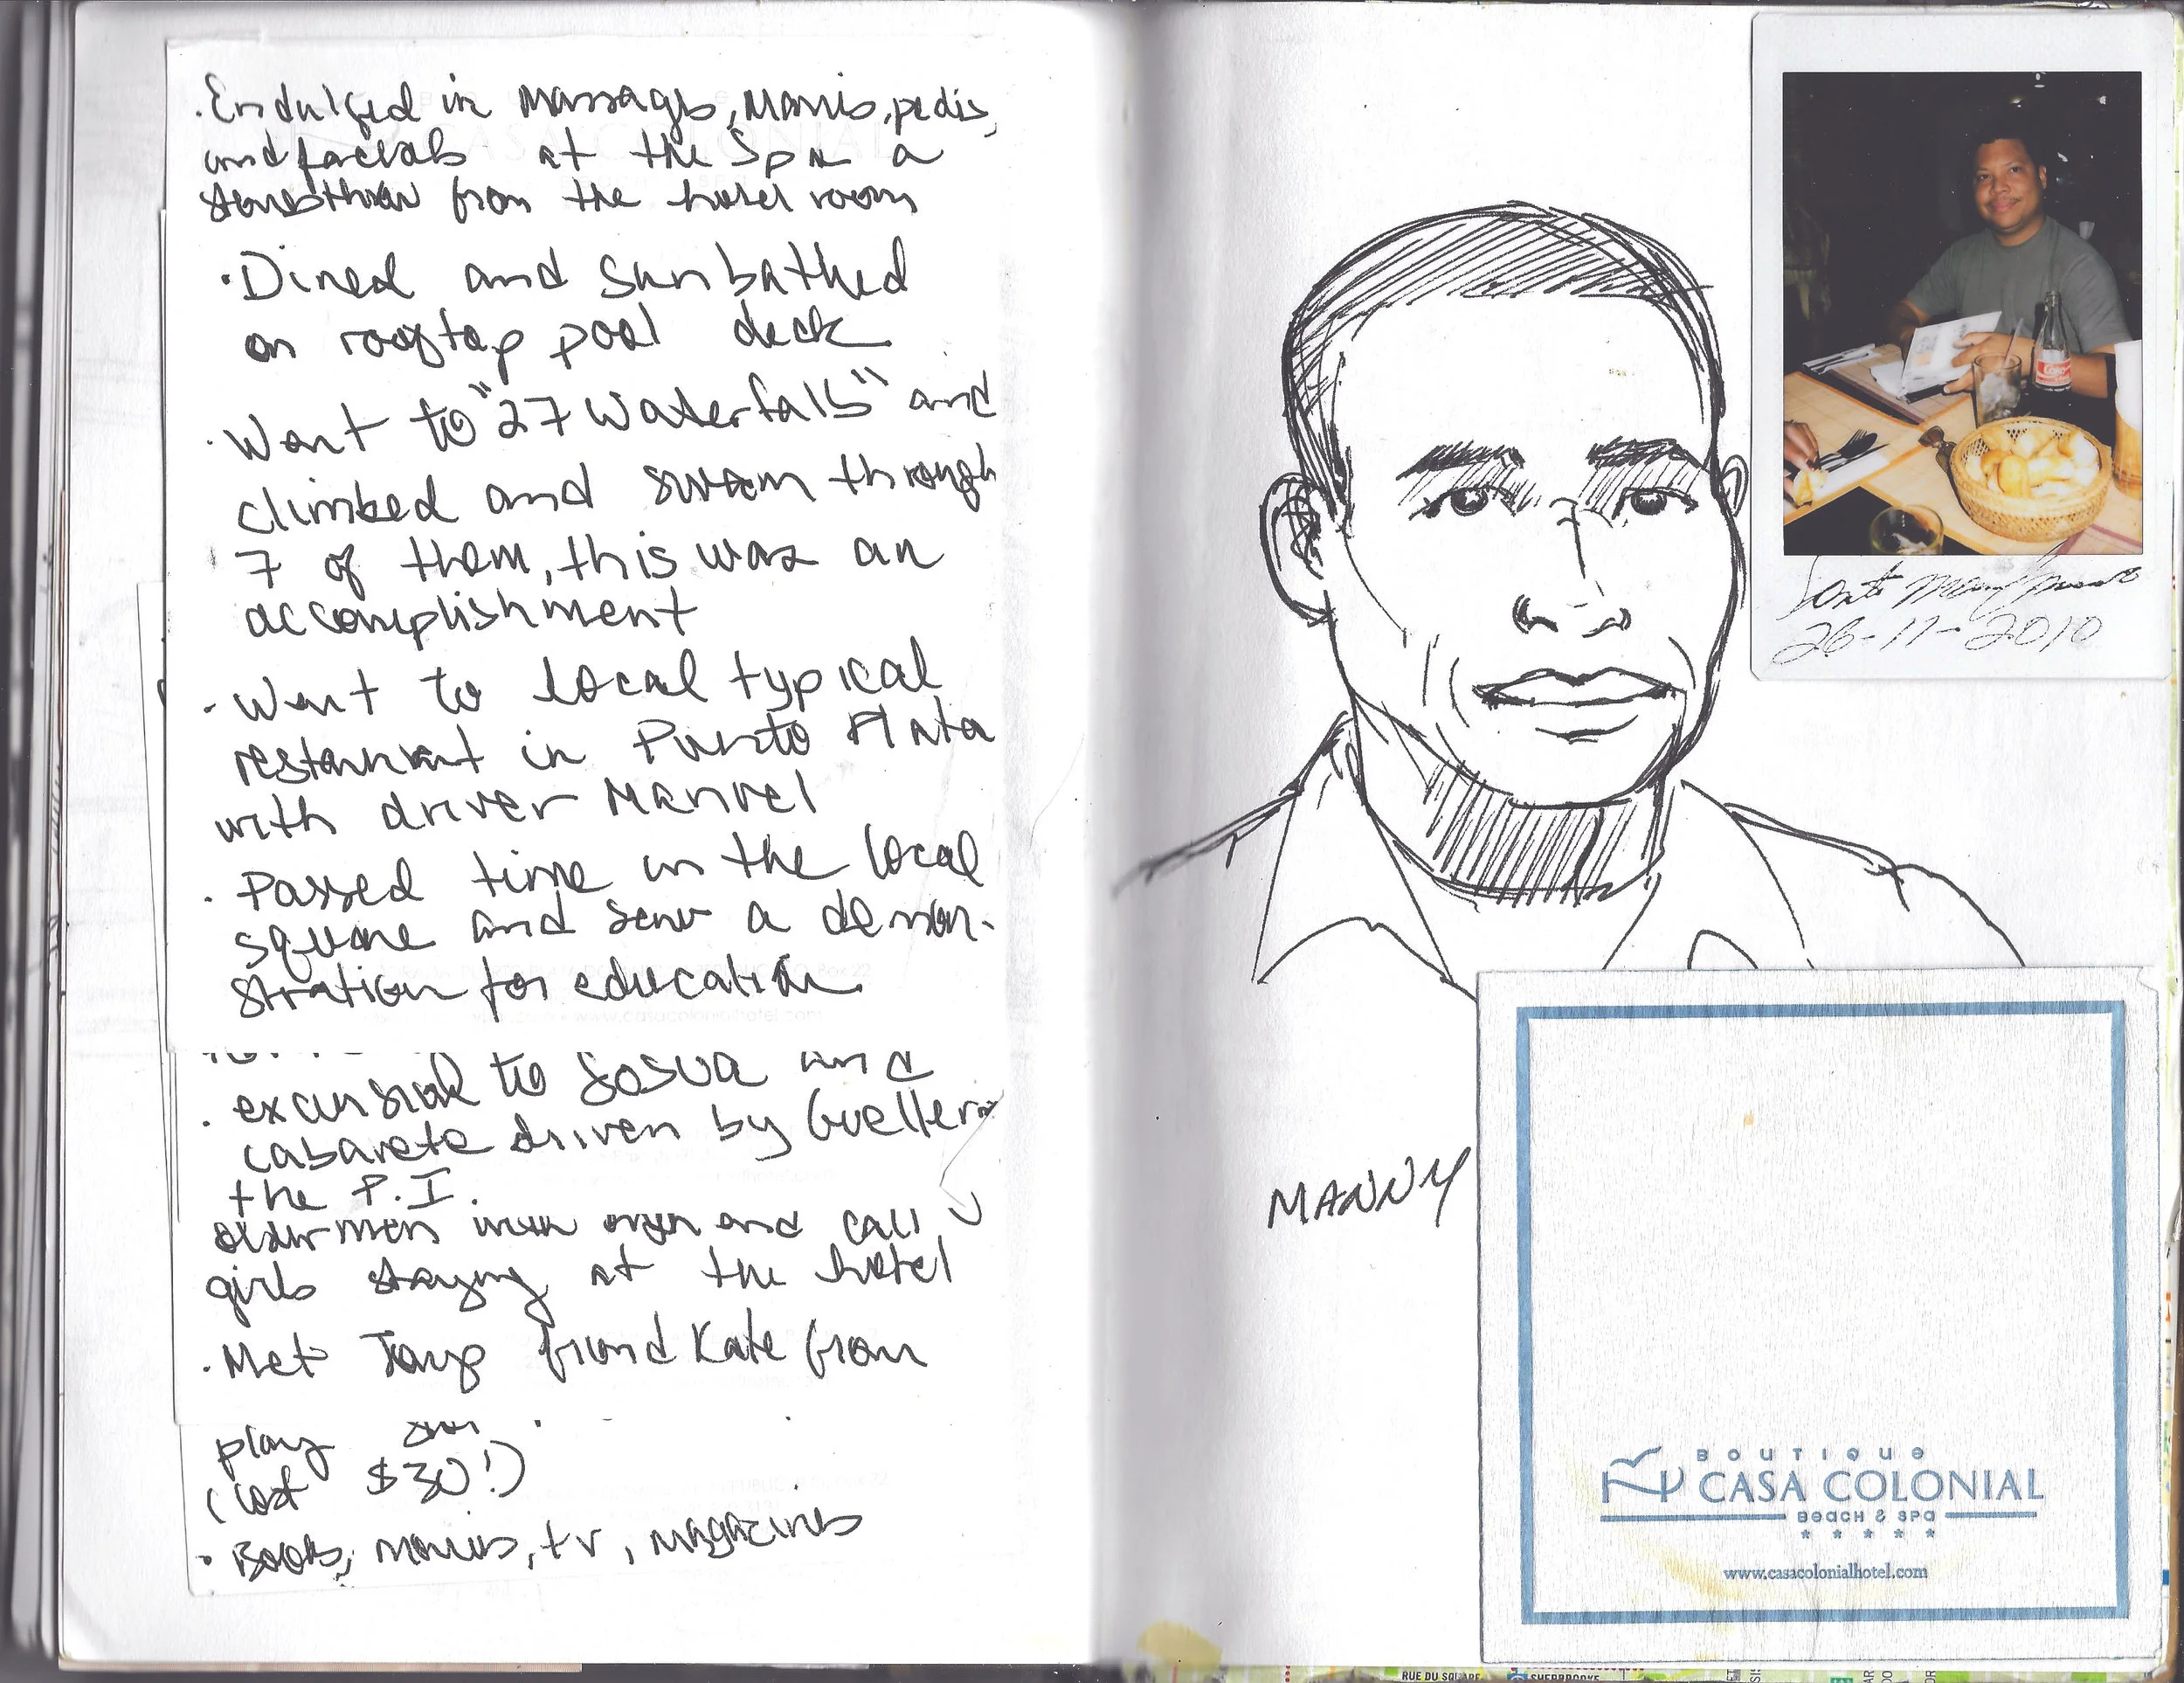 · Endulged in massages, manis, pedis,
and facials at the Spa a
stonesthrow from the hotel room
· Dined and sunbathed
on rooftop pool deck
· Went to "27 Waterfalls" and
climbed and swam through
7 of them, this was an
accomplishment
· Went to local typical
restaurant in Puerto Plata
with driver Manuel
· Passed time in the local
square and saw a demon-
stration for education
· excursion to Sosua and
cabarete driven by Guellermo
the P.I.
older men and call
girls staying at the hotel
· Met friend Kate from
play
(cost $30!)
· Books, movies, tv, magazines
www.casacolonialhotel.com
26-11-2010
MANNY
BOUTIQUE
CASA COLONIAL
BEACH & SPA
www.casacolonialhotel.com
RUE DU SQUARE
SHERBROOKE